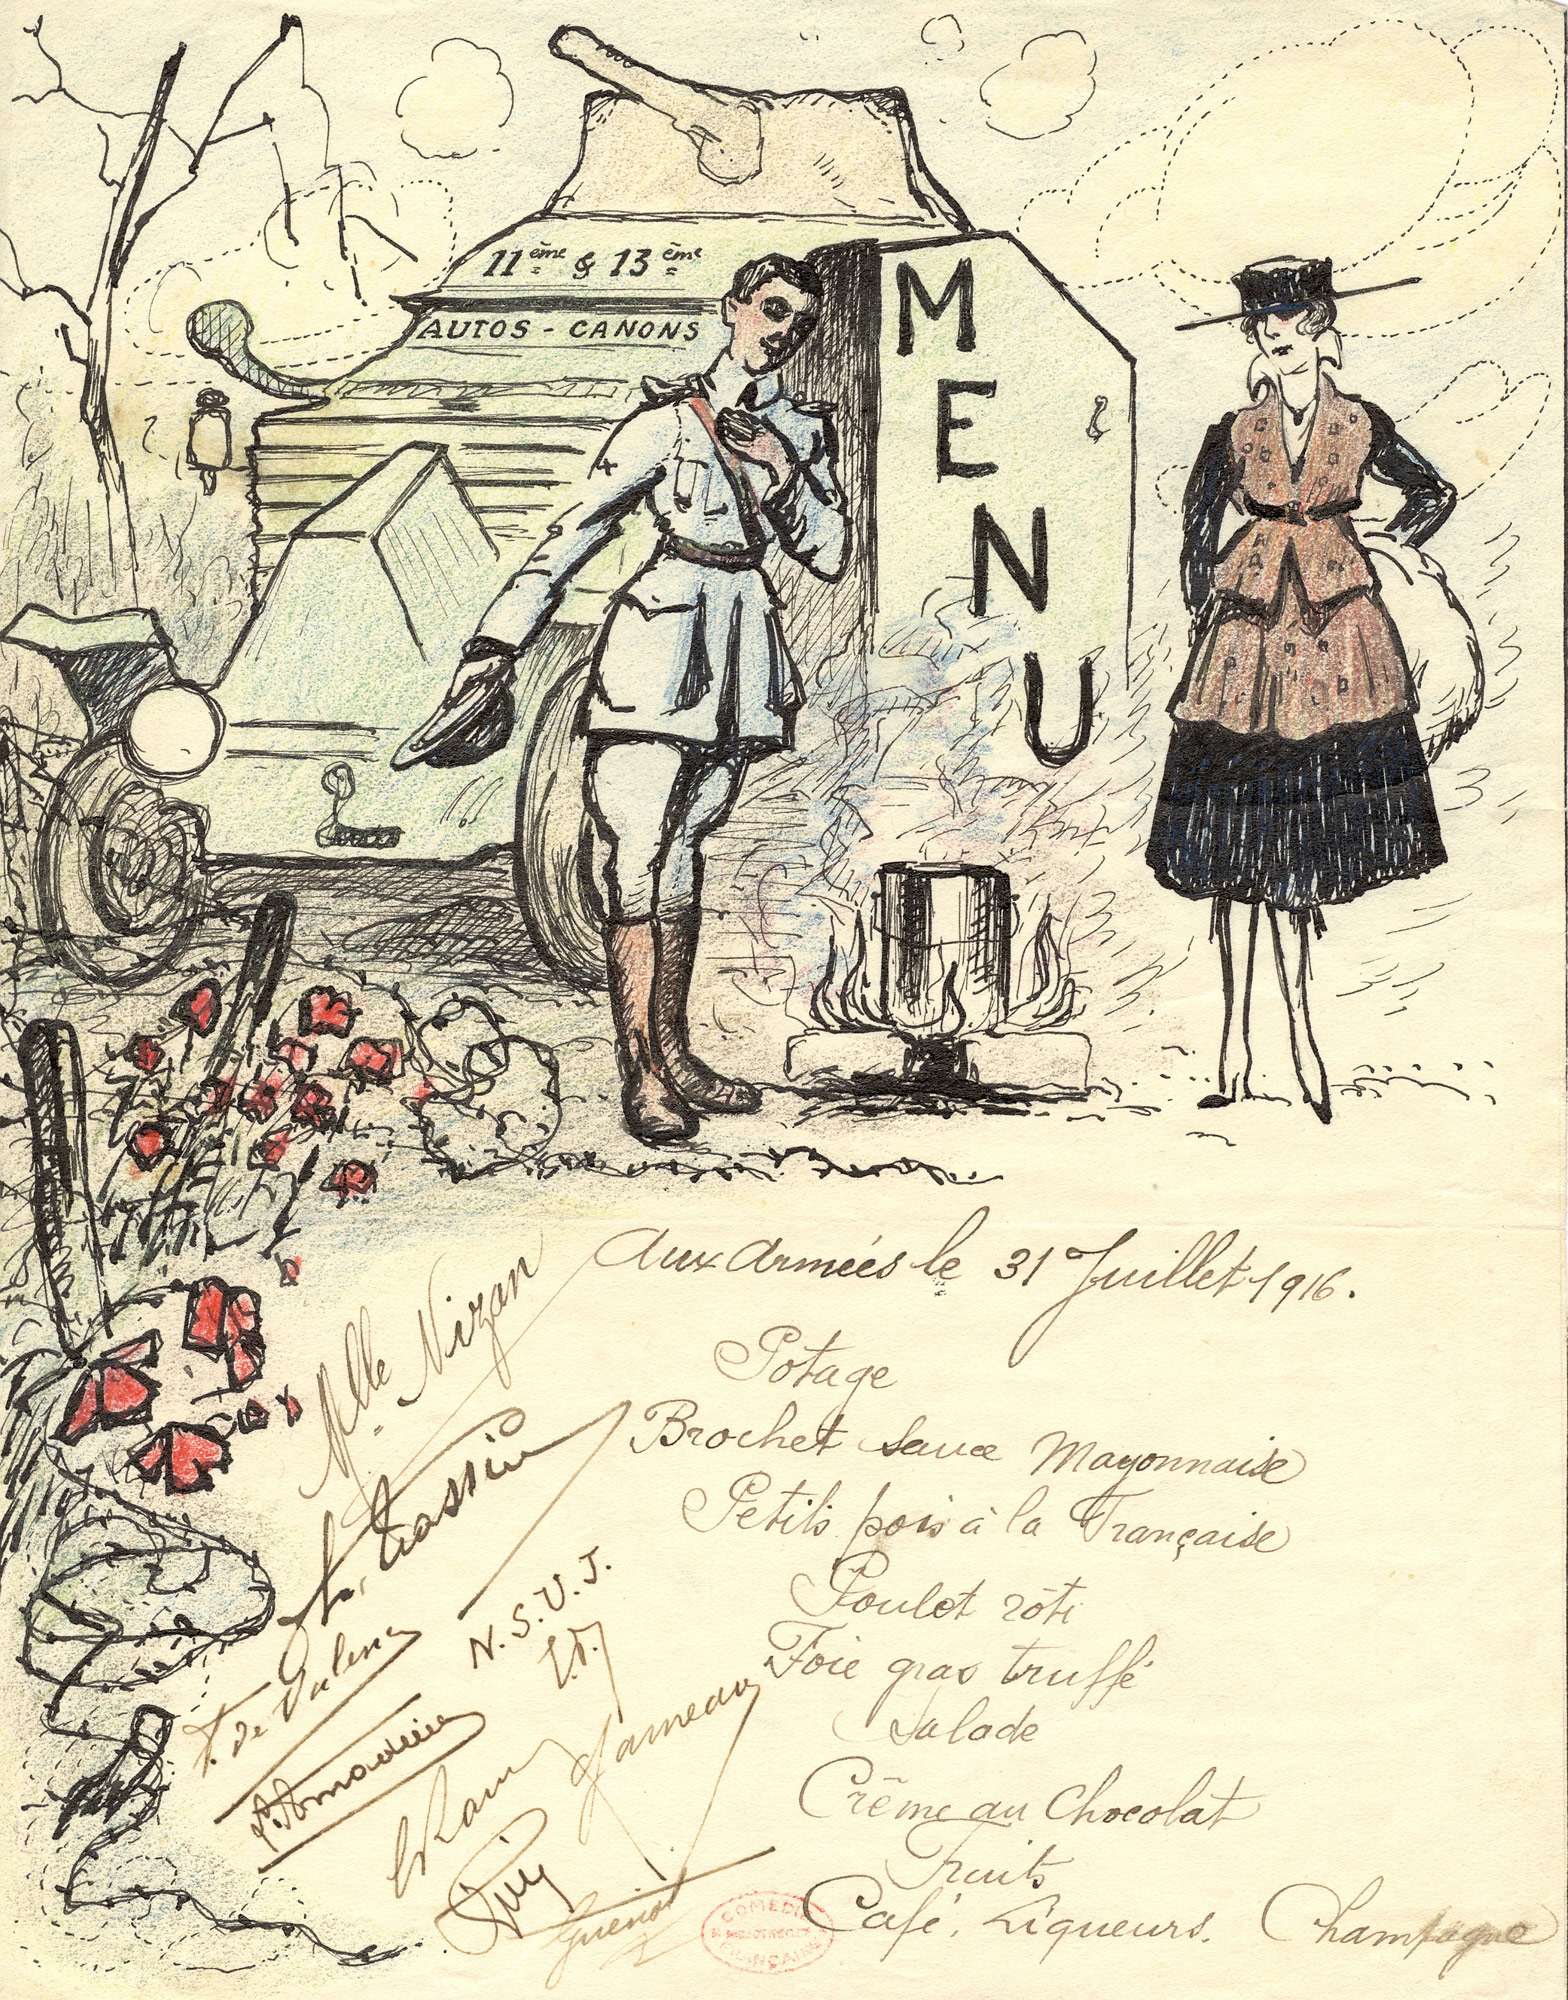 11ème & 13ème
AUTOS - CANONS
MENU
Aux Armées le 31 Juillet 1916.
Potage
Brochet sauce Mayonnaise
Petits pois à la Française
Poulet rôti
Foie gras truffé
Salade
Crême au Chocolat
Fruits
Café. Liqueurs. Champagne
Mlle Nizan
N.S.U.J.
COMEDIE
FRANÇAISE